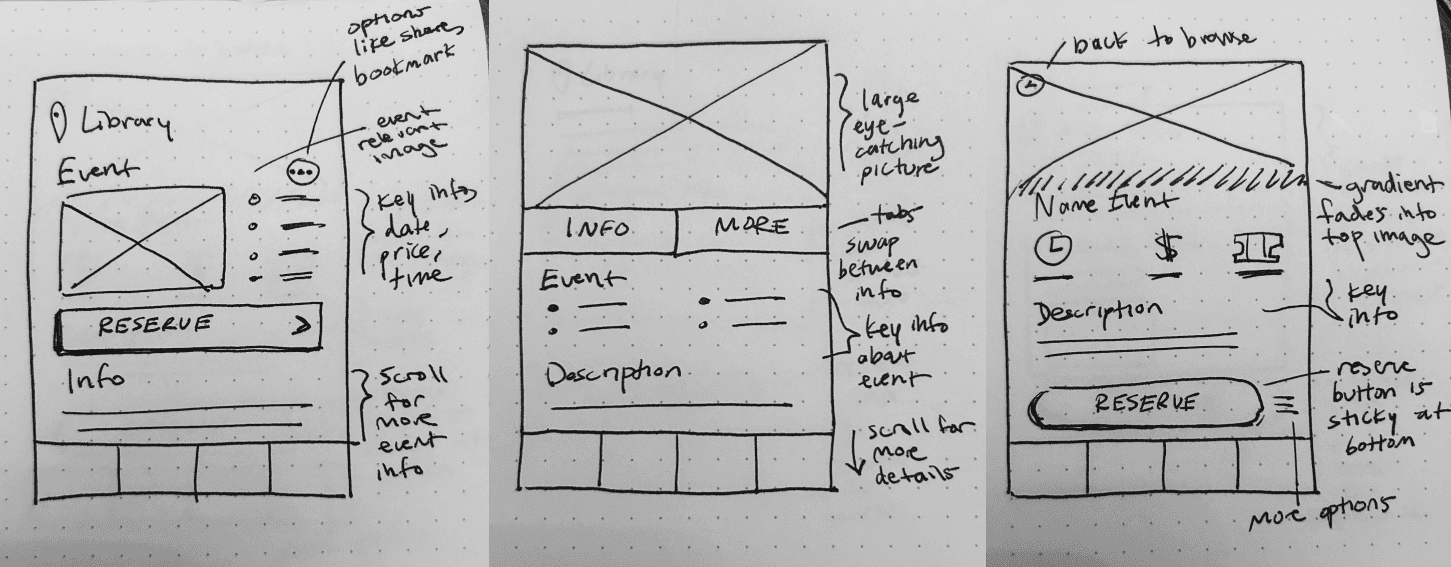 options
like share,
bookmark
Library
event
relevant
image
Event
Key info,
date,
price,
time
RESERVE
Info
Scroll
for
more
event
info
large
eye-
catching
picture
INFO
MORE
tabs
swap
between
info
Event
Key info
about
event
Description
scroll for
more
details
back to browse
gradient
fades into
top image
Name Event
$
Key
info
Description
reserve
button is
sticky at
bottom
RESERVE
More options